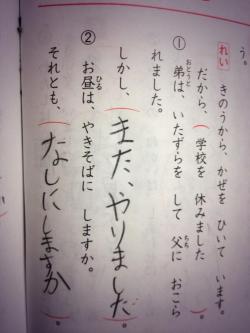 う。
れい きのうから、かぜを ひいて います。
だから、(学校を 休みました)。
① 弟は、いたずらを して 父に おこら
おとうと ちち
れました。
しかし、(また、やりました)。
② お昼は、やきそばに しますか。
ひる
それとも、(なしにしますか)。